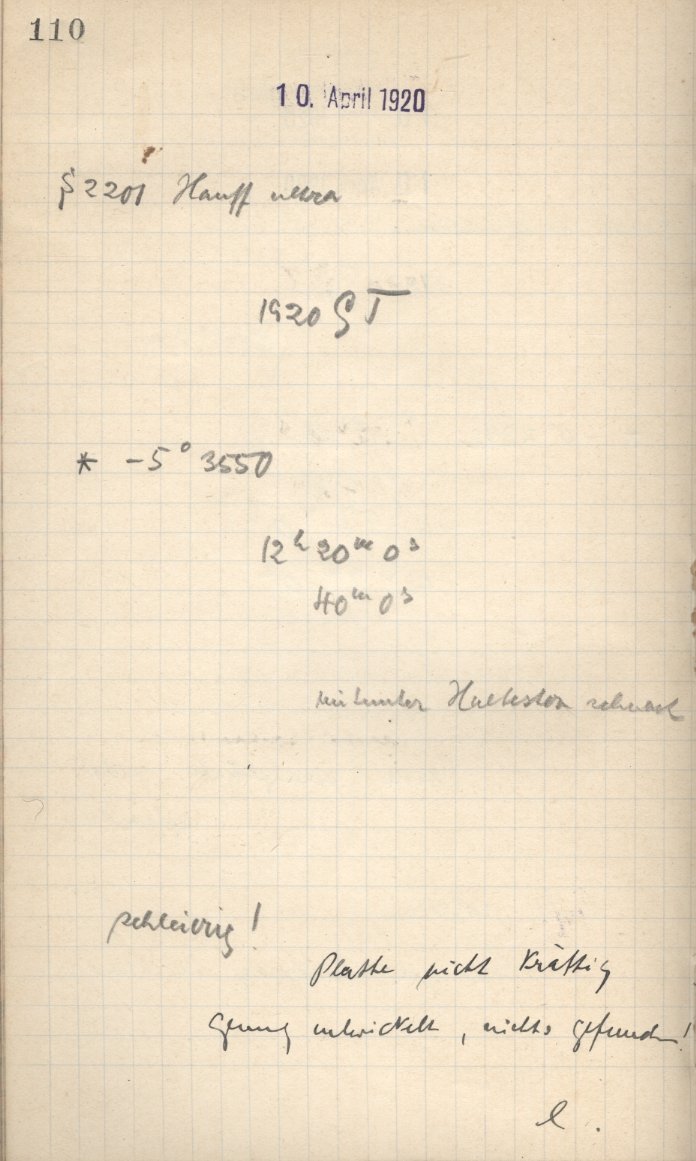 110
10. April 1920
§ 2201 Hauff ultra
1920 § T
* -5° 3550
12ʰ 20ᵐ 0ˢ
40ᵐ 0ˢ
mitunter Haltestern schwach
schleierig!
Platte nicht kräftig
genug entwickelt, nichts gefunden!